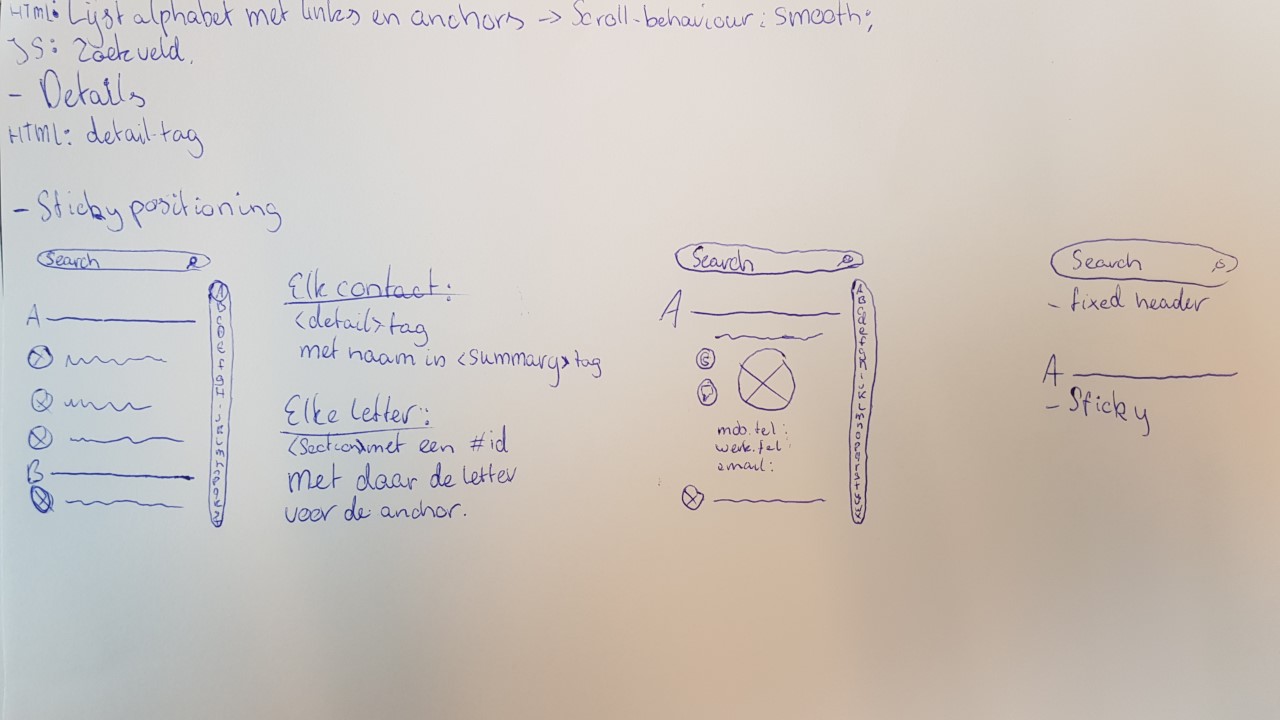 HTML: Lijst alphabet met links en anchors -> Scroll-behaviour: smooth;
JS: Zoekveld.
- Details
HTML: detail-tag
- Sticky positioning
Search
A
B
A
B
C
D
e
f
g
H
i
J
K
L
m
Elk contact:
<detail> tag
met naam in <summary> tag
Elke letter:
<Section> met een #id
met daar de letter
voor de anchor.
Search
A
mob.tel:
werk.tel:
email:
A
B
C
d
e
f
g
H
i
J
K
L
m
n
o
p
q
r
s
t
Search
- fixed header
A
- Sticky